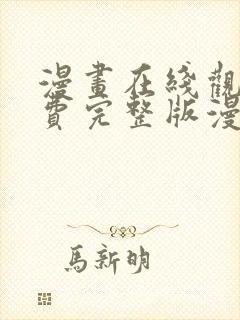 漫畫在綫觀
費完整版漫
馬新明